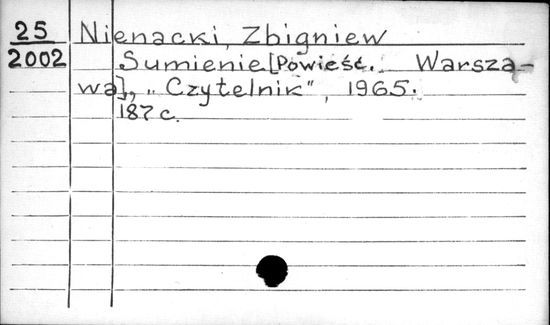 25 Nienacki, Zbigniew
2002 Sumienie [Powieść. Warsza-
wa], „Czytelnik", 1965.
187 c.